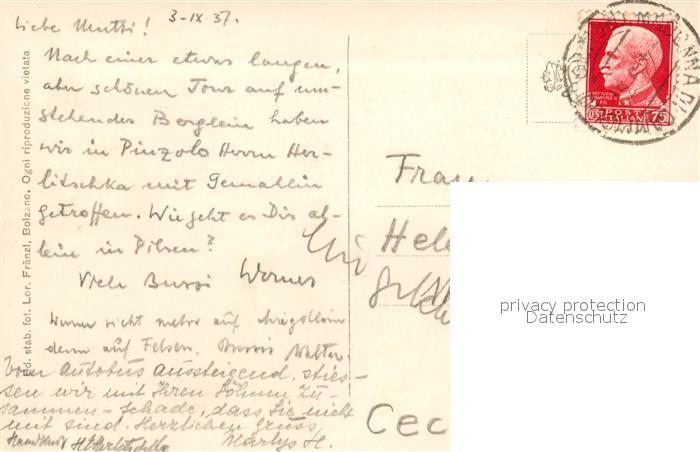 Liebe Mutti! 3-IX.37.
Nach einer etwas langen,
aber schönen Tour auf um-
stehendes Berglein haben
wir in Pinzolo Herrn Her-
litschka mit Gemahlin
getroffen. Wie geht es Dir al-
lein in Pilsen?
Viele Bussi Werner
Wenn nicht mehr auf
denn auf Felsen. Bussis Walter.
Vom Autobus aussteigend, sties-
sen wir mit Ihren Söhnen zu-
sammen - schade, dass Sie nicht
mit sind. Herzlichen Gruss,
Marlys H.
Ed. stab. fot. Lor. Fränzl, Bolzano. Ogni riproduzione vietata
POSTE ITALIANE
CENT 75
Frau
Hele
Cec
privacy protection
Datenschutz